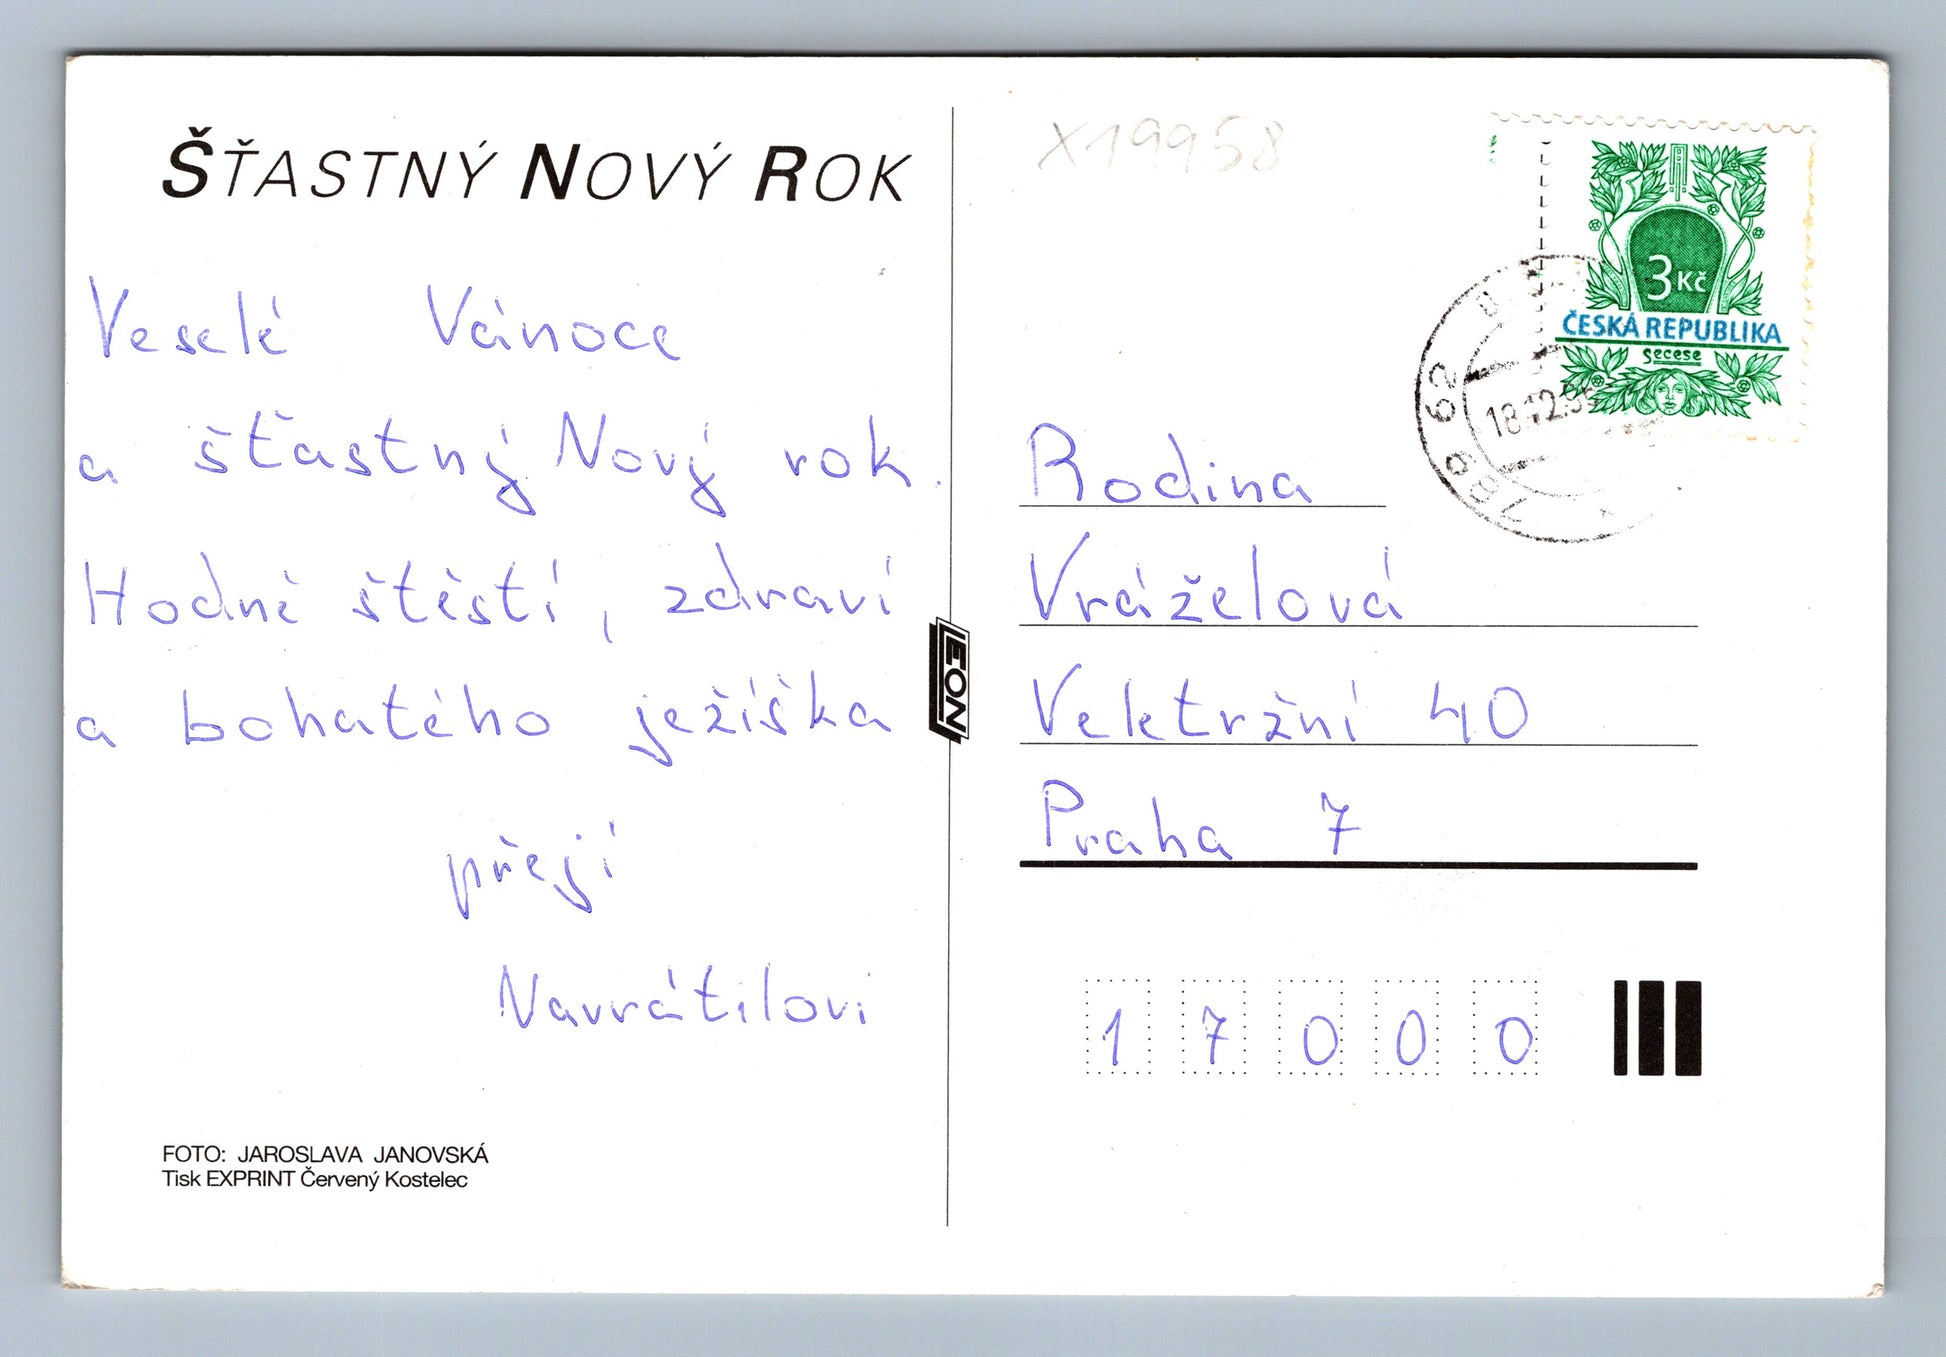 ŠŤASTNÝ NOVÝ ROK
Veselé Vánoce
a šťastný Nový rok.
Hodně štěstí, zdraví
a bohatého ježíška
přejí
Navrátilovi
FOTO: JAROSLAVA JANOVSKÁ
Tisk EXPRINT Červený Kostelec
LEON
X19958
3 Kč
ČESKÁ REPUBLIKA
secese
789 62
18.12.
Rodina
Vráželová
Veletržní 40
Praha 7
17000